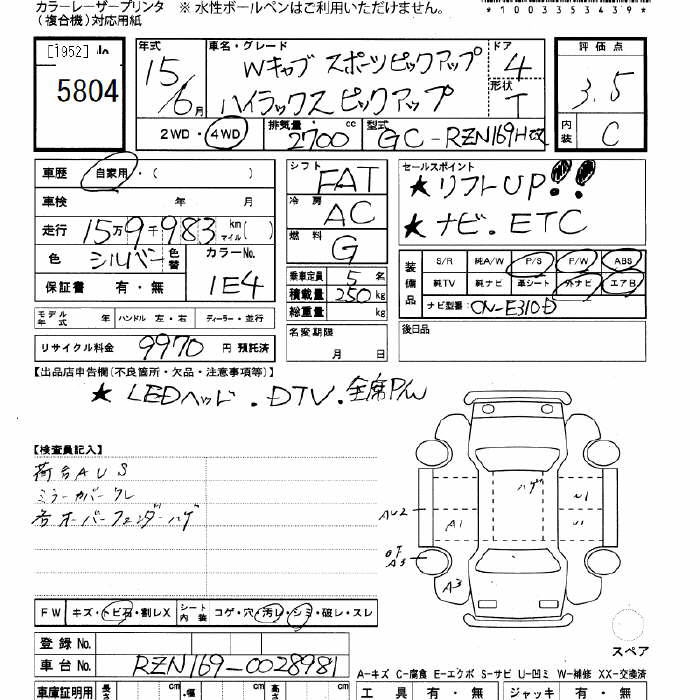 カラーレーザープリンタ ※ 水性ボールペンはご利用いただけません。
(複合機)対応用紙
*1003353439*
[1952]
5804
年式 15/6月
車名・グレード Wキャブ スポーツピックアップ
ハイラックスピックアップ
ドア 4
形状 T
評価点 3.5
内装 C
2WD・4WD 排気量 2700 cc 型式 GC-RZN169H改
車歴 自家用・( )
車検 年 月
走行 15万9千983 km マイル( )
色 シルバー 色替 カラーNo. 1E4
保証書 有・無
シフト FAT
冷房 AC
燃料 G
乗車定員 5 名
積載量 250 kg
総重量 kg
セールスポイント
★リフトUP!!
★ナビ.ETC
装備品 S/R 純A/W P/S P/W ABS
純TV 純ナビ 革シート 外ナビ エアB
ナビ型番 CN-E310D
モデル年式 年 ハンドル 左・右 ディーラー・並行
リサイクル料金 9970 円 預託済
名変期限 月 日
後日品
【出品店申告欄(不良箇所・欠品・注意事項等)】
★ LEDヘッド.DTV.全席P/W
【検査員記入】
荷台AUS
ミラーカバークレ
右オーバーフェンダーハゲ
ハゲ
AU2
A1
U1
U1
OF
A5
A3
スペア
FW キズ・トビ石・割レX シート内装 コゲ・穴・汚レ・シミ・破レ・スレ
登録No.
車台No. RZN169-0028981
A-キズ C-腐食 E-エクボ S-サビ U-凹ミ W-補修 XX-交換済
車庫証明用 長さ cm 幅 cm 高さ cm 工具 有・無 ジャッキ 有・無